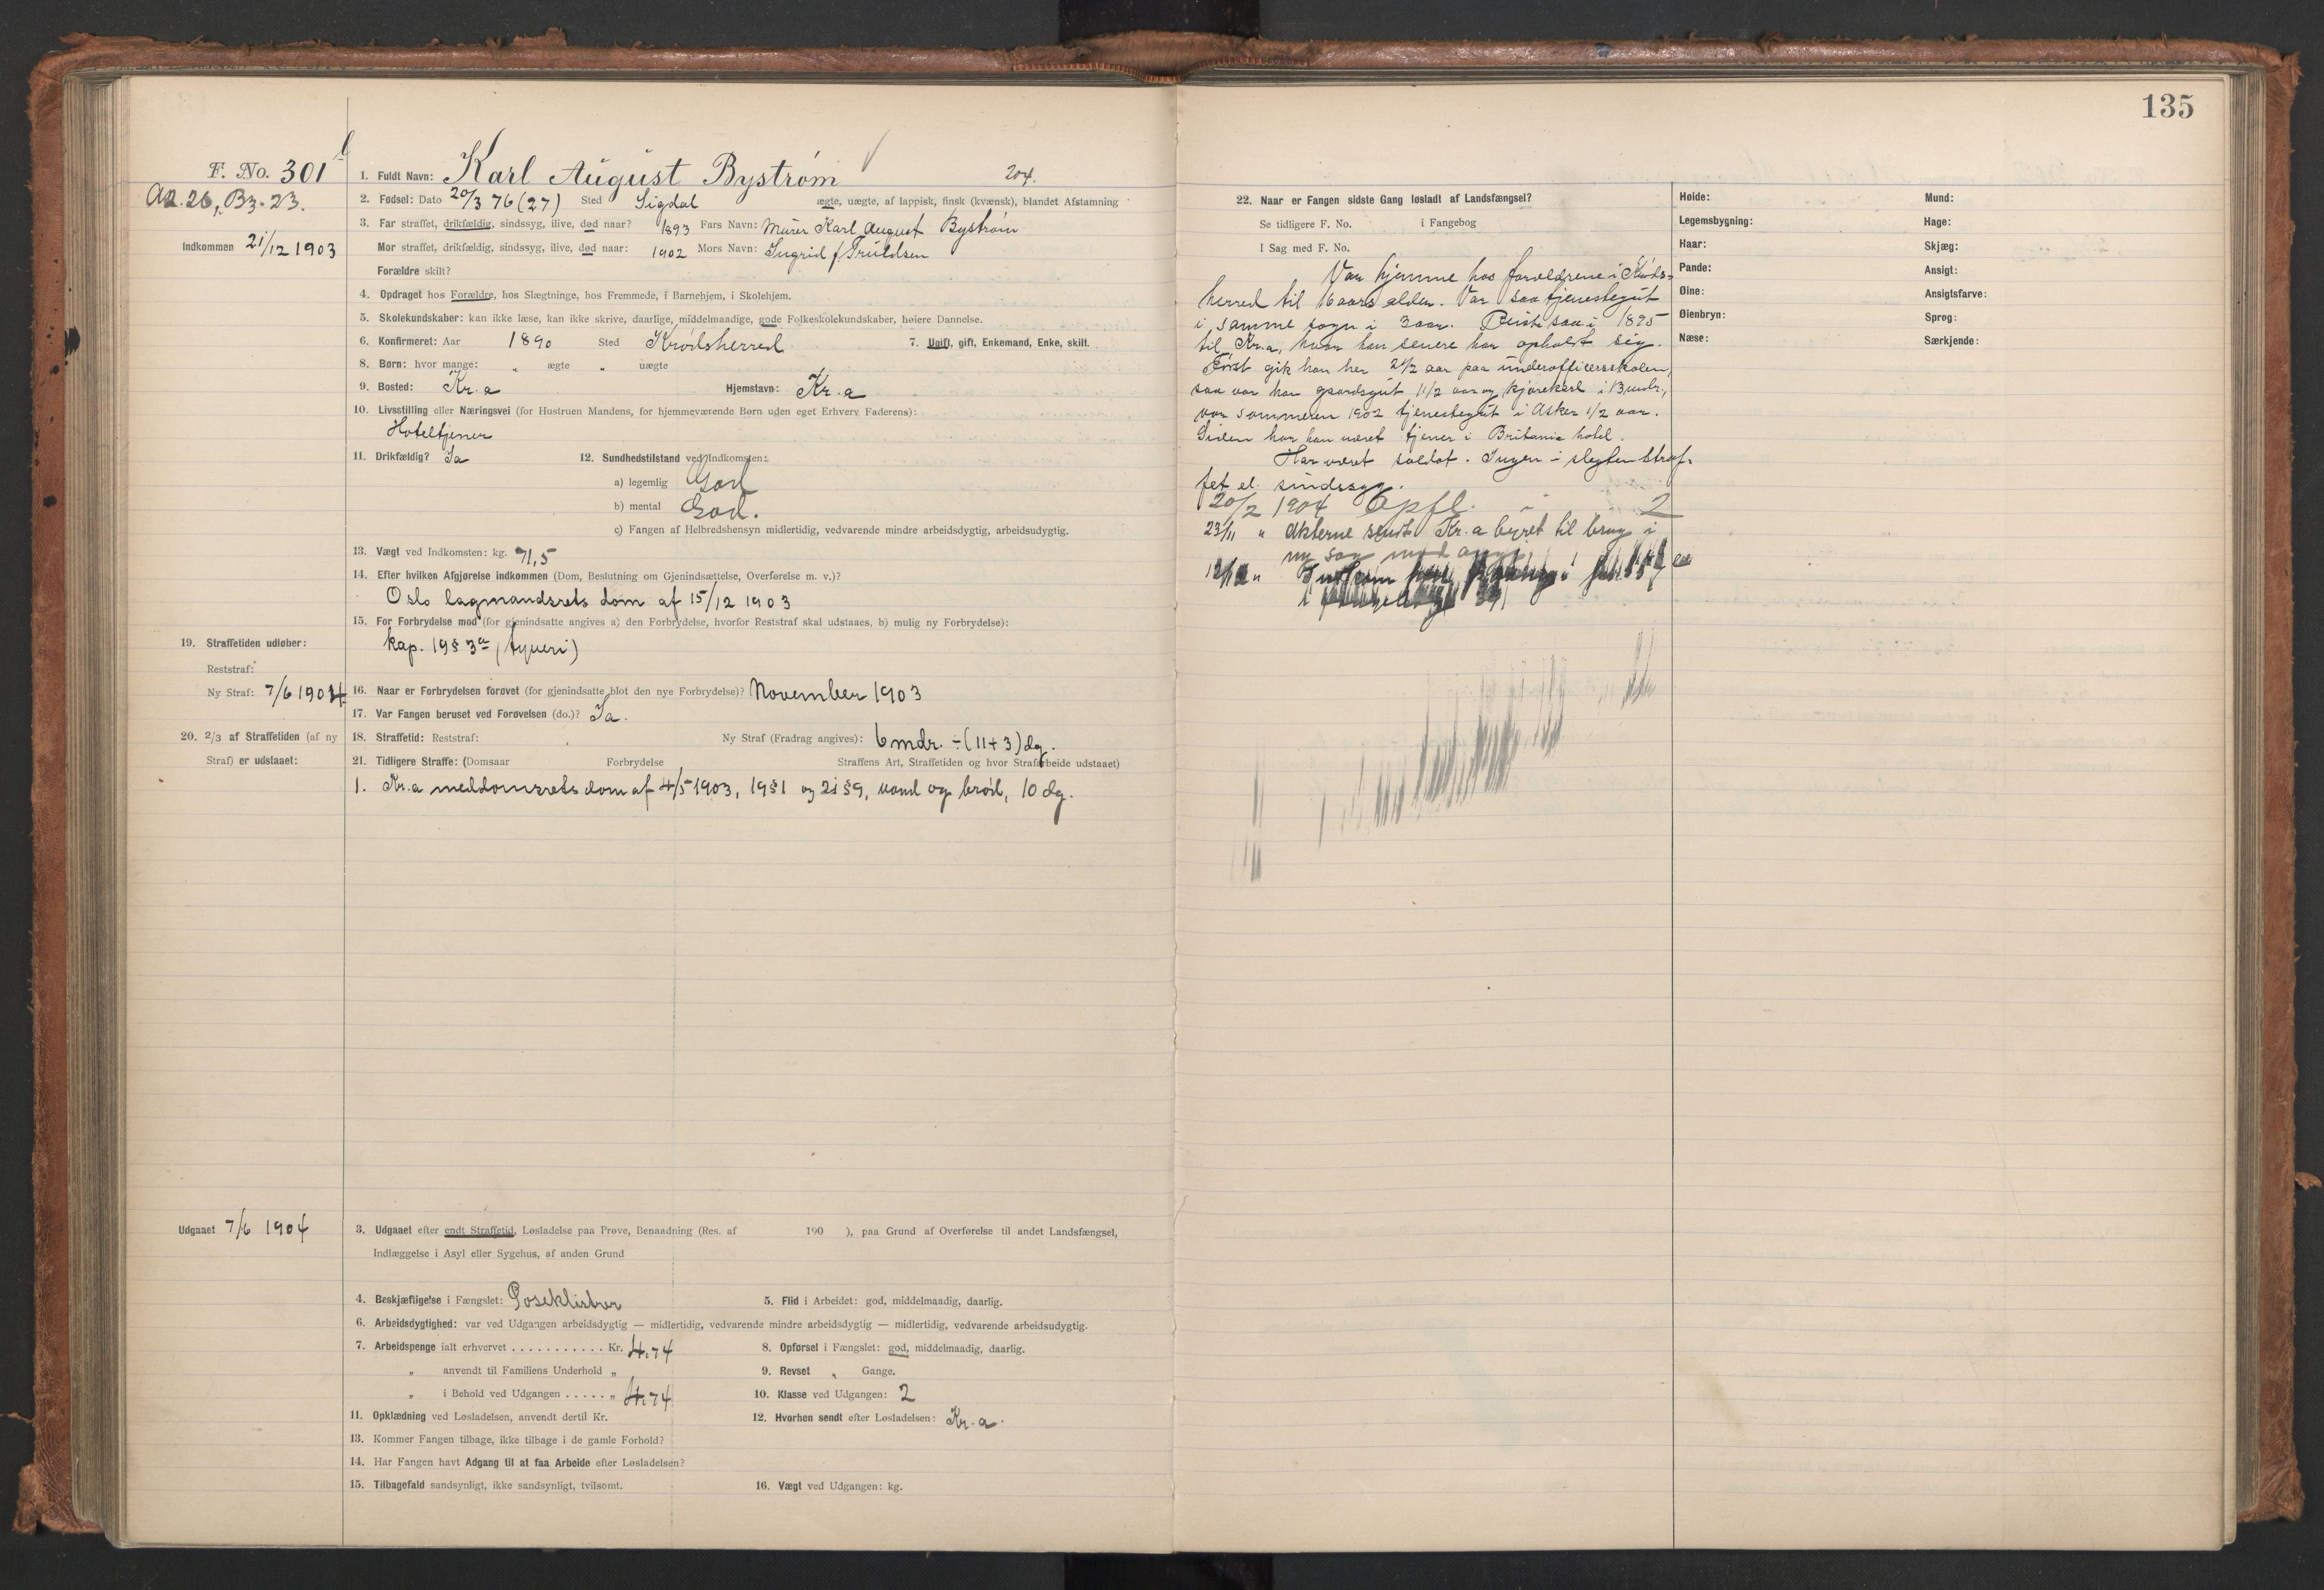 135
F. No. 301
A2. 26, B3. 23.
Indkommen 21/12 1903
1. Fuldt Navn: Karl August Bystrøm 204.
2. Fødsel: Dato 20/3 76 (27) Sted Sigdal ægte, uægte, af lappisk, finsk (kvænsk), blandet Afstamning
3. Far straffet, drikfældig, sindssyg, ilive, død naar? 1893 Fars Navn: Murer Karl August Bystrøm
Mor straffet, drikfældig, sindssyg, ilive, død naar: 1902 Mors Navn: Ingrid f. Truldsen
Forældre skilt?
4. Opdraget hos Forældre, hos Slægtninge, hos Fremmede, i Barnehjem, i Skolehjem.
5. Skolekundskaber: kan ikke læse, kan ikke skrive, daarlige, middelmaadige, gode Folkeskolekundskaber, høiere Dannelse.
6. Konfirmeret: Aar 1890 Sted Krødsherred 7. Ugift, gift, Enkemand, Enke, skilt.
8. Børn: hvor mange: " ægte " uægte
9. Bosted: Kr.a Hjemstavn: Kr.a
10. Livsstilling eller Næringsvei (for Hustruen Mandens, for hjemmeværende Børn uden eget Erhverv Faderens):
Hoteltjener
11. Drikfældig? Ja 12. Sundhedstilstand ved Indkomsten:
a) legemlig God
b) mental God.
c) Fangen af Helbredshensyn midlertidig, vedvarende mindre arbeidsdygtig, arbeidsudygtig.
13. Vægt ved Indkomsten: kg. 71,5
14. Efter hvilken Afgjørelse indkommen (Dom, Beslutning om Gjenindsættelse, Overførelse m. v.)?
Oslo lagmandsrets dom af 15/12 1903
15. For Forbrydelse mod (for gjenindsatte angives a) den Forbrydelse, hvorfor Reststraf skal udstaaes, b) mulig ny Forbrydelse):
kap. 19 § 3a (tyveri)
19. Straffetiden udløber:
Reststraf:
Ny Straf: 7/6 1904
16. Naar er Forbrydelsen forøvet (for gjenindsatte blot den nye Forbrydelse)? November 1903
17. Var Fangen beruset ved Forøvelsen (do.)? Ja.
20. 2/3 af Straffetiden (af ny
Straf) er udstaaet:
18. Straffetid: Reststraf: Ny Straf (Fradrag angives): 6 mdr. ÷ (11 + 3) dg.
21. Tidligere Straffe: (Domsaar Forbrydelse Straffens Art, Straffetiden og hvor Strafarbeide udstaaet)
1. Kr.a meddomsrets dom af 4/5 1903, 19 § 1 og 21 § 9, vand og brød, 10 dg.
Udgaaet 7/6 1904
3. Udgaaet efter endt Straffetid, Løsladelse paa Prøve, Benaadning (Res. af 190 ), paa Grund af Overførelse til andet Landsfængsel,
Indlæggelse i Asyl eller Sygehus, af anden Grund
4. Beskjæftigelse i Fængslet: Poseklistrer 5. Flid i Arbeidet: god, middelmaadig, daarlig.
6. Arbeidsdygtighed: var ved Udgangen arbeidsdygtig — midlertidig, vedvarende mindre arbeidsdygtig — midlertidig, vedvarende arbeidsudygtig.
7. Arbeidspenge ialt erhvervet . . . . . . . . . . . Kr. 4.74 8. Opførsel i Fængslet: god, middelmaadig, daarlig.
" anvendt til Familiens Underhold " 9. Revset " Gange.
" i Behold ved Udgangen . . . . . " 4.74 10. Klasse ved Udgangen: 2
11. Opklædning ved Løsladelsen, anvendt dertil Kr. 12. Hvorhen sendt efter Løsladelsen: Kr.a.
13. Kommer Fangen tilbage, ikke tilbage i de gamle Forhold?
14. Har Fangen havt Adgang til at faa Arbeide efter Løsladelsen?
15. Tilbagefald sandsynligt, ikke sandsynligt, tvilsomt. 16. Vægt ved Udgangen: kg.
22. Naar er Fangen sidste Gang løsladt af Landsfængsel?
Se tidligere F. No. i Fangebog
I Sag med F. No.
Var hjemme hos forældrene i Krøds-
herred til 16 aars alder. Var saa tjenestegut
i samme sogn i 3 aar. Reiste saa i 1895
til Kr.a, hvor han senere har opholdt sig.
Først gik han her 2 1/2 aar paa underofficersskolen,
saa var han gaardsgut 1 1/2 aar og kjørekarl i 13 mdr.,
var sommeren 1902 tjenestegut i Asker 1/2 aar.
Siden har han været tjener i Britania hotel.
Har været soldat. Ingen i slegten straf-
fet el. sindssyg.
20/2 1904 Opfl. i 2
23/11 " Akterne sendt Kr.a byret til brug i
ny sag mod
Høide:
Legemsbygning:
Haar:
Pande:
Øine:
Øienbryn:
Næse:
Mund:
Hage:
Skjæg:
Ansigt:
Ansigtsfarve:
Sprog:
Særkjende: